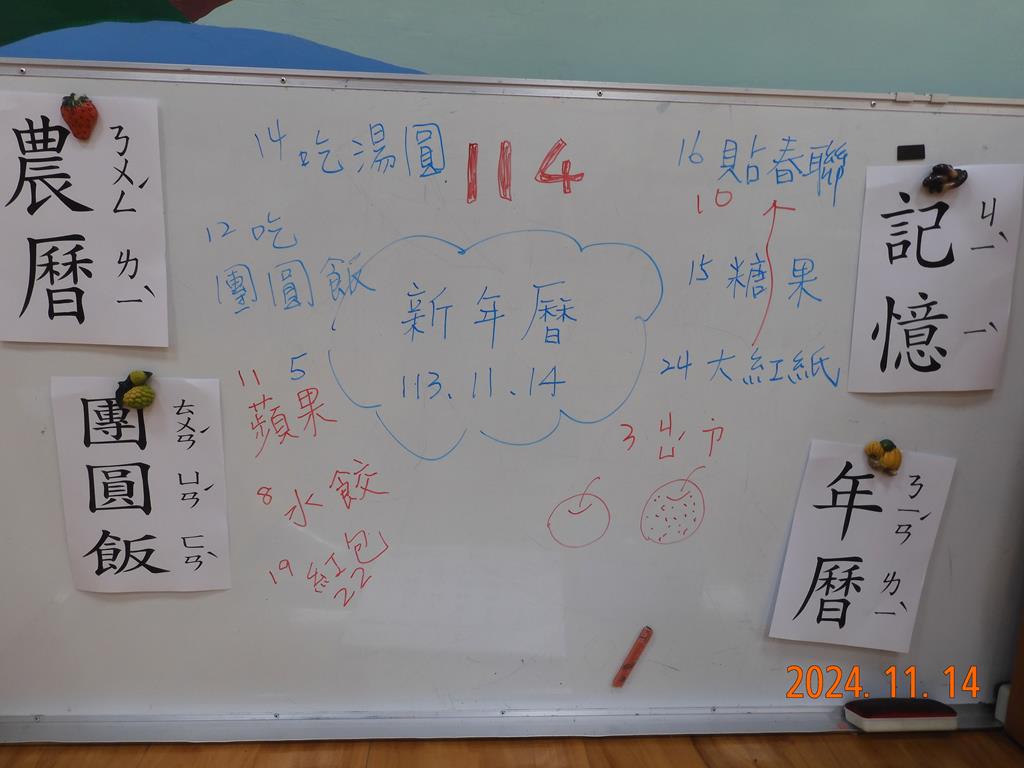 農曆
ㄋㄨㄥˊ
ㄌㄧˋ
14 吃湯圓
114
16 貼春聯
10
記憶
ㄐㄧˋ
ㄧˋ
12 吃
團圓飯
新年曆
113.11.14
15 糖果
24 大紅紙
11 5
蘋果
3
團圓飯
ㄊㄨㄢˊ
ㄩㄢˊ
ㄈㄢˋ
8 水餃
19 紅包
22
年曆
ㄋㄧㄢˊ
ㄌㄧˋ
2024.11.14